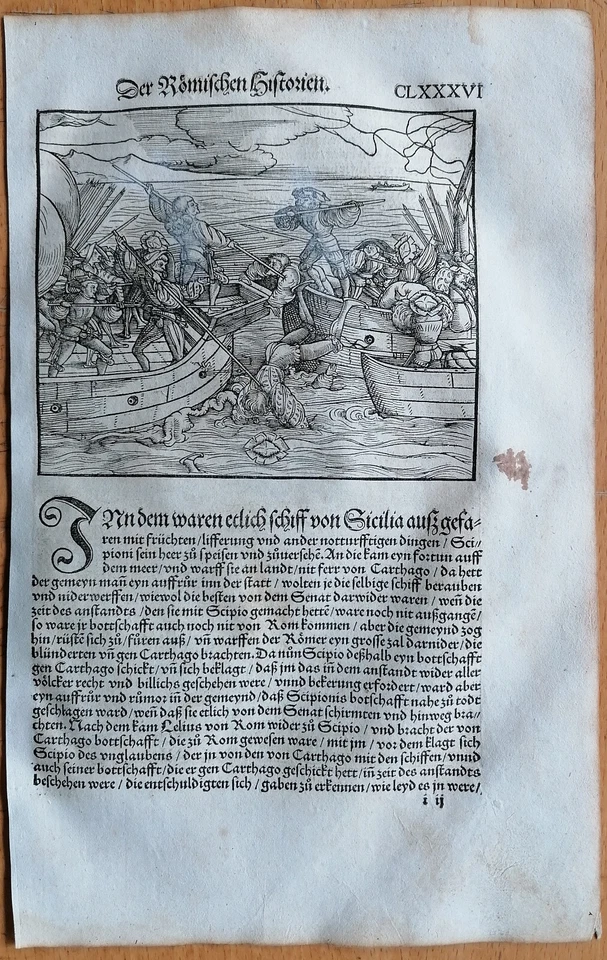 Der Römischen Historien.
CLXXXVI
INn dem waren etlich schiff von Sicilia außgefa-
ren mit früchten / lifferung vnd ander notturfftigen dingen / Sci-
pioni sein heer zů speisen vnd zůuersehē. An die kam eyn fortun auff
dem meer / vnd warff sie an landt / nit ferr von Carthago / da hett
der gemeyn mañ eyn auffrůr inn der statt / wolten je die selbige schiff berauben
vnd niderwerffen / wiewol die besten von dem Senat darwider waren / weñ die
zeit des anstandts / den sie mit Scipio gemacht hettē / ware noch nit außgangē /
so ware jr bottschafft auch noch nit von Rom kommen / aber die gemeynd zog
hin / rüstē sich zů / fůren auß / vñ warffen der Römer eyn grosse zal darnider / die
blünderten vñ gen Carthago brachten. Da nůn Scipio deßhalb eyn bottschafft
gen Carthago schickt / vñ sich beklagt / daß jm das iñ dem anstandt wider aller
völcker recht vnd billichs geschehen were / vnnd bekerung erfordert / ward aber
eyn auffrůr vnd růmor iñ der gemeynd / daß Scipionis botschafft nahe zů todt
geschlagen ward / weñ daß sie etlich von dem Senat schirmten vnd hinweg bra-
chten. Nach dem kam Lelius von Rom wider zů Scipio / vnd bracht der von
Carthago bottschafft / die zů Rom gewesen ware / mit jm / vor dem klagt sich
Scipio des vnglaubens / der jn von den von Carthago mit den schiffen / vnnd
auch seiner bottschafft / die er gen Carthago geschickt hett / iñ zeit des anstandts
beschehen were / die entschuldigten sich / gaben zů erkennen / wie leyd es jn were /
i ij